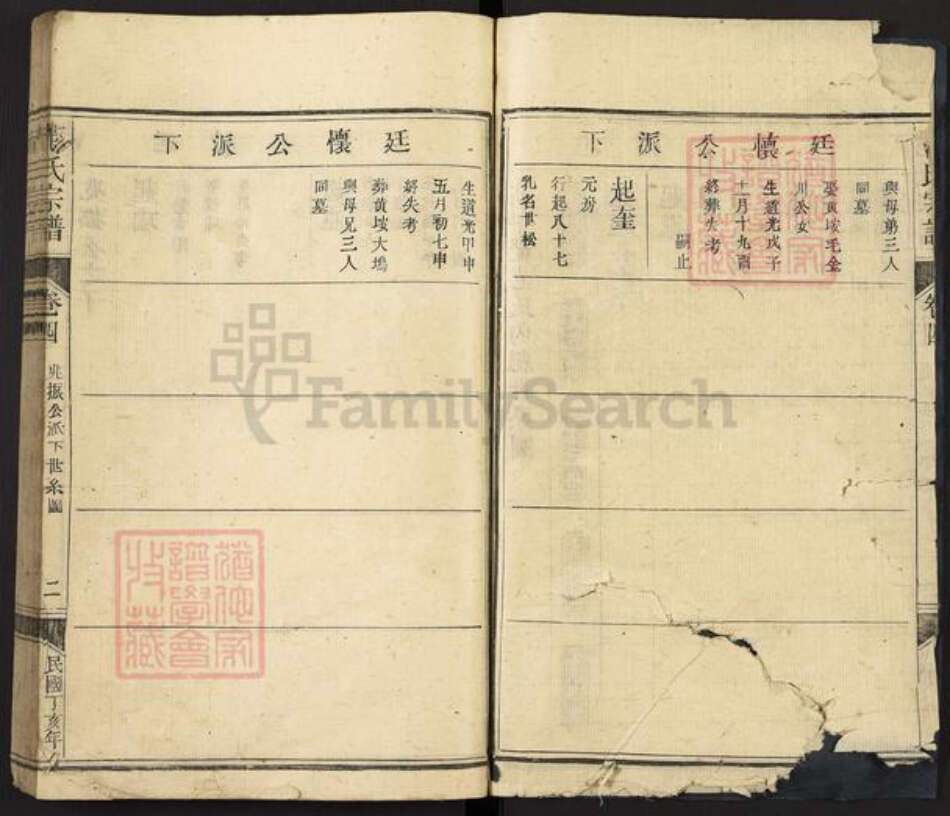 廷懷公派下
與母弟三人
同墓
娶黃垵毛金
川公女
生道光戊子
十一月十九酉
終葬失考
嗣止
起奎
元房
行起八十七
乳名世松
廷懷公派下
生道光甲申
五月初七申
終失考
葬黃垵大塢
與母兄三人
同墓
氏宗譜
卷四
兆振公派下世系圖
二
民國丁亥年
氏宗譜
卷四
FamilySearch
譜學會
收藏